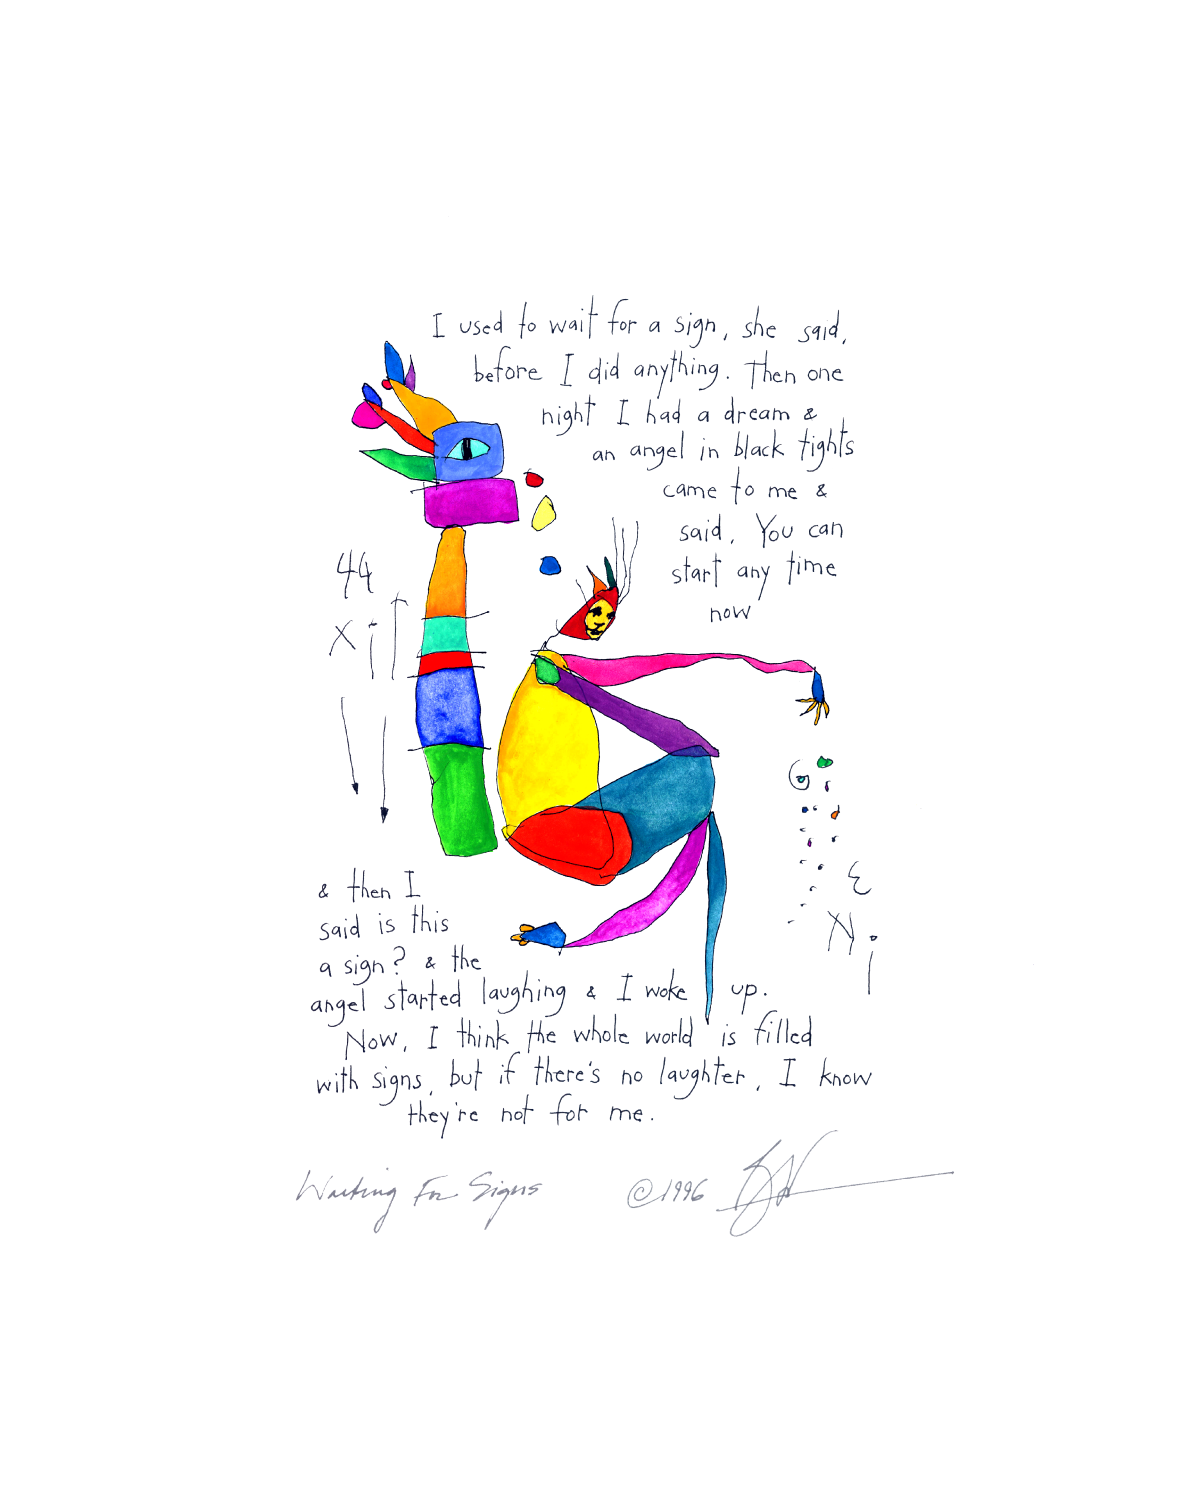 I used to wait for a sign, she said,
before I did anything. Then one
night I had a dream &
an angel in black tights
came to me &
said, You can
start any time
now
44
& then I
said is this
a sign? & the
angel started laughing & I woke up.
Now, I think the whole world is filled
with signs, but if there's no laughter, I know
they're not for me.
Waiting For Signs ©1996